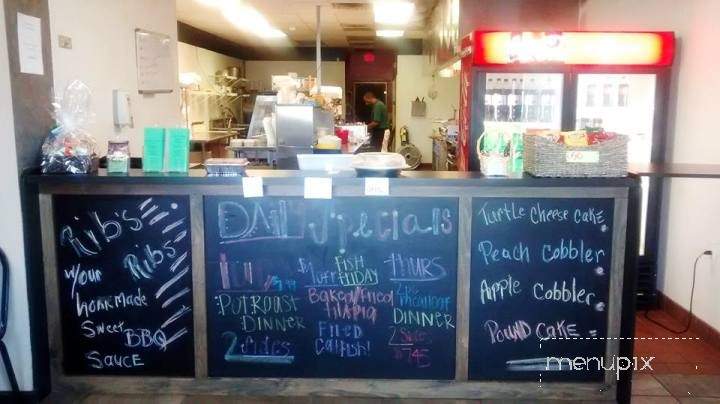 Rib's
Ribs
w/our
homemade
Sweet
BBQ
Sauce
DAILY Specials
POT ROAST
DINNER
2 Sides
FISH
FRIDAY
Baked/Fried
tilapia
Fried
Catfish!
THURS
DINNER
2 Sides
Turtle Cheese cake
Peach Cobbler
Apple Cobbler
POUND CAKE
menupix